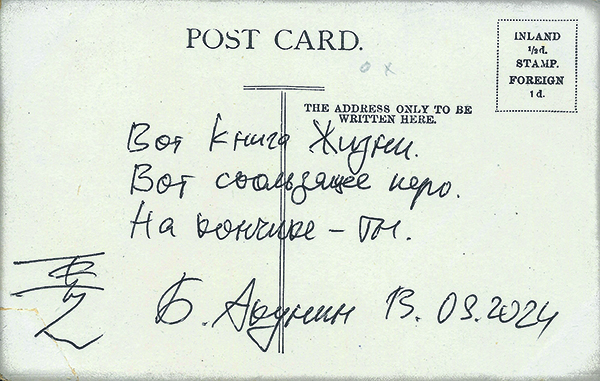 POST CARD.
INLAND
½d.
STAMP.
FOREIGN
1d.
THE ADDRESS ONLY TO BE
WRITTEN HERE.
Вот книга Жизни.
Вот скользящее перо.
На кончике – ты.
Б. Акунин 13.03.2024